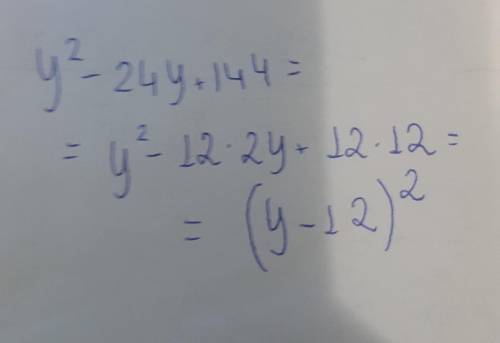 y² - 24y + 144 =
= y² - 12 · 2y + 12 · 12 =
= (y - 12)²